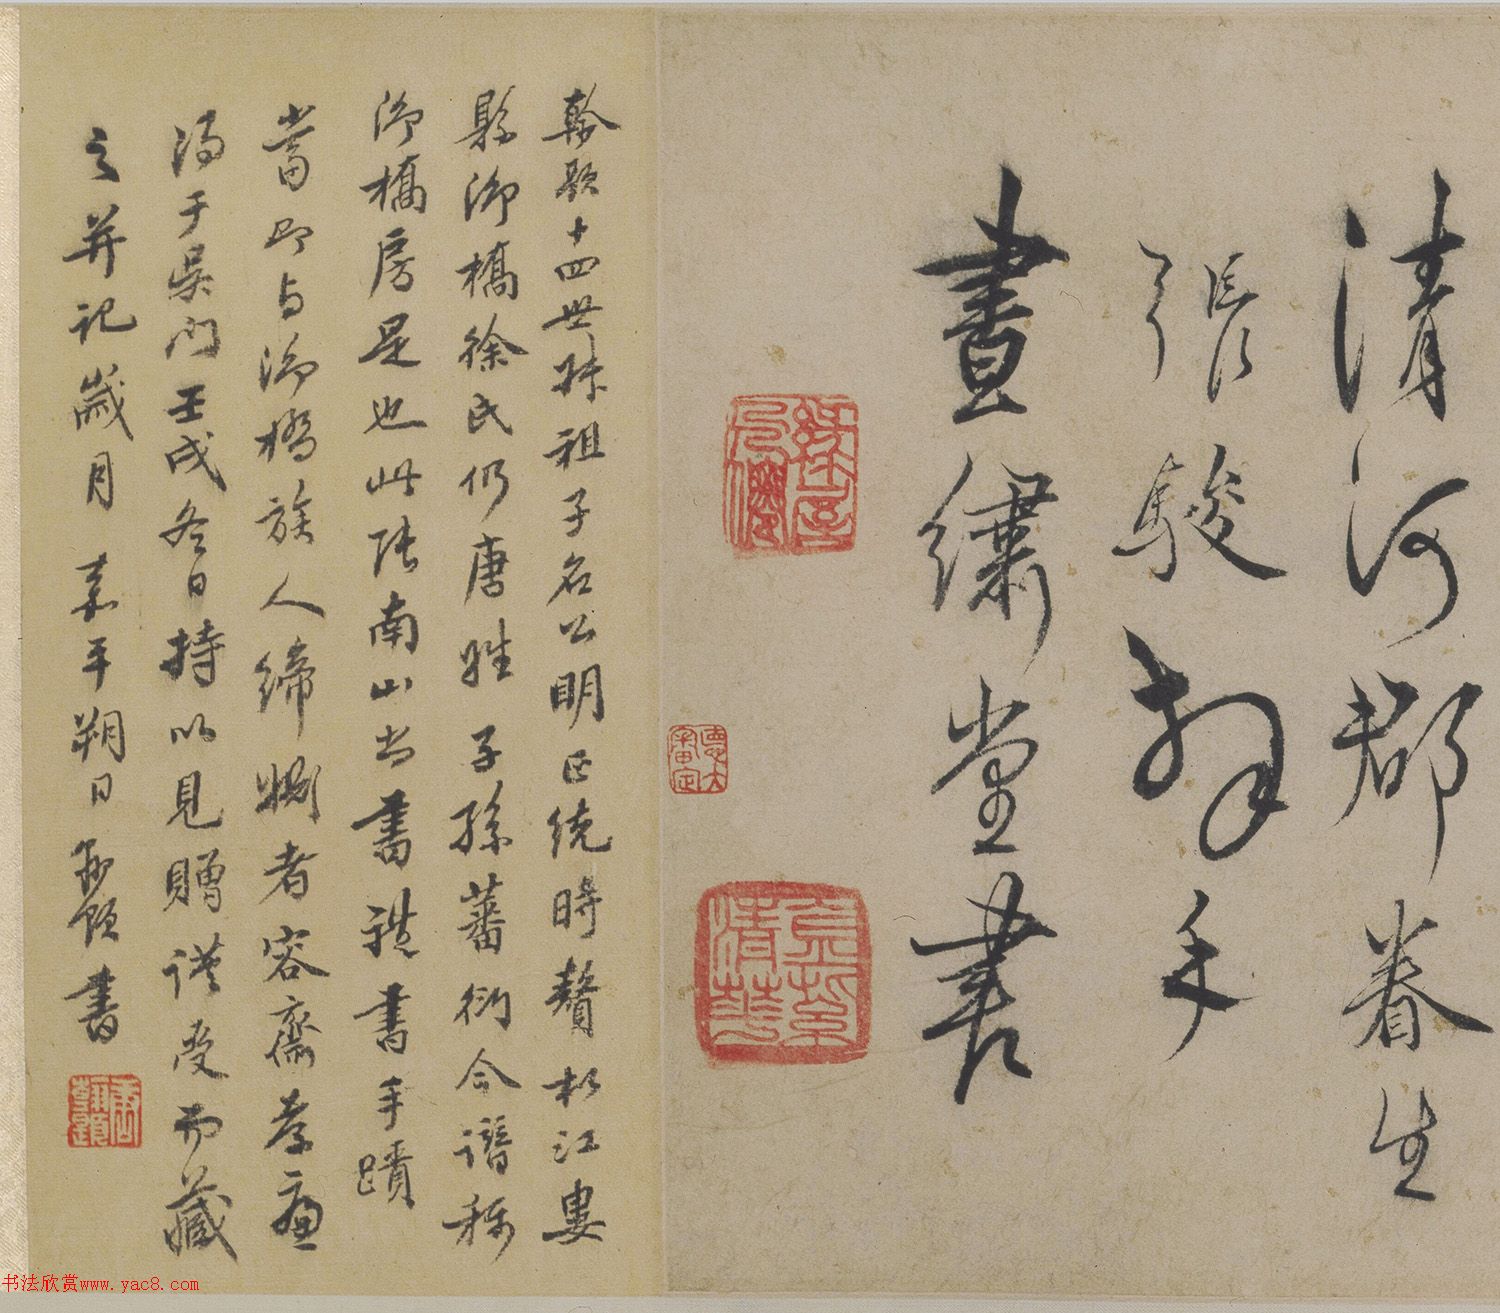 清河郡眷生
張駿拜手
書繡堂書
翰題十四世叔祖子名公明正統時贅松江婁
縣海橋徐氏仍唐姓子孫蕃衍今譜稱
海橋房是也此張南山书書禮書手蹟
當即与海橋族人締婣者容齋孝廉
得于吳門壬戌冬日持以見贈謹受而藏
之并記歲月 嘉平朔日翰題書
书法欣赏www.yac8.com